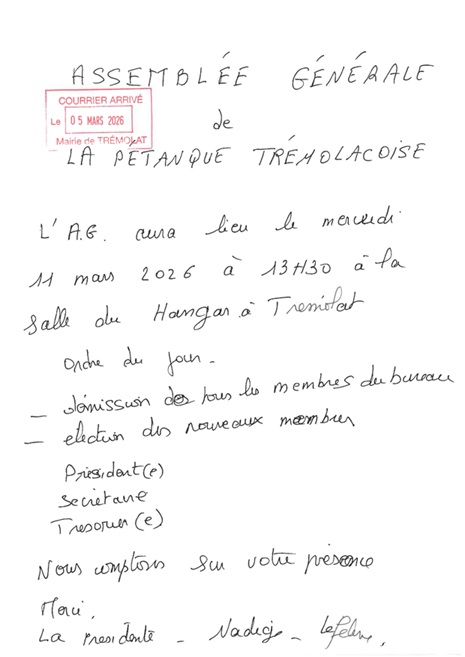 ASSEMBLÉE GÉNÉRALE
COURRIER ARRIVÉ
Le 05 MARS 2026
Mairie de TRÉMOLAT
de
LA PÉTANQUE TRÉMOLACOISE
L'A.G. aura lieu le mercredi
11 mars 2026 à 13H30 à la
Salle du Hangar à Tremolat
Ordre du jour -
- démission de tous les membres du bureau
- election des nouveaux membres
Président(e)
Secretaire
Tresorier (e)
Nous comptons sur votre présence
Merci,
La presidente - Nadege - Lefebvre,